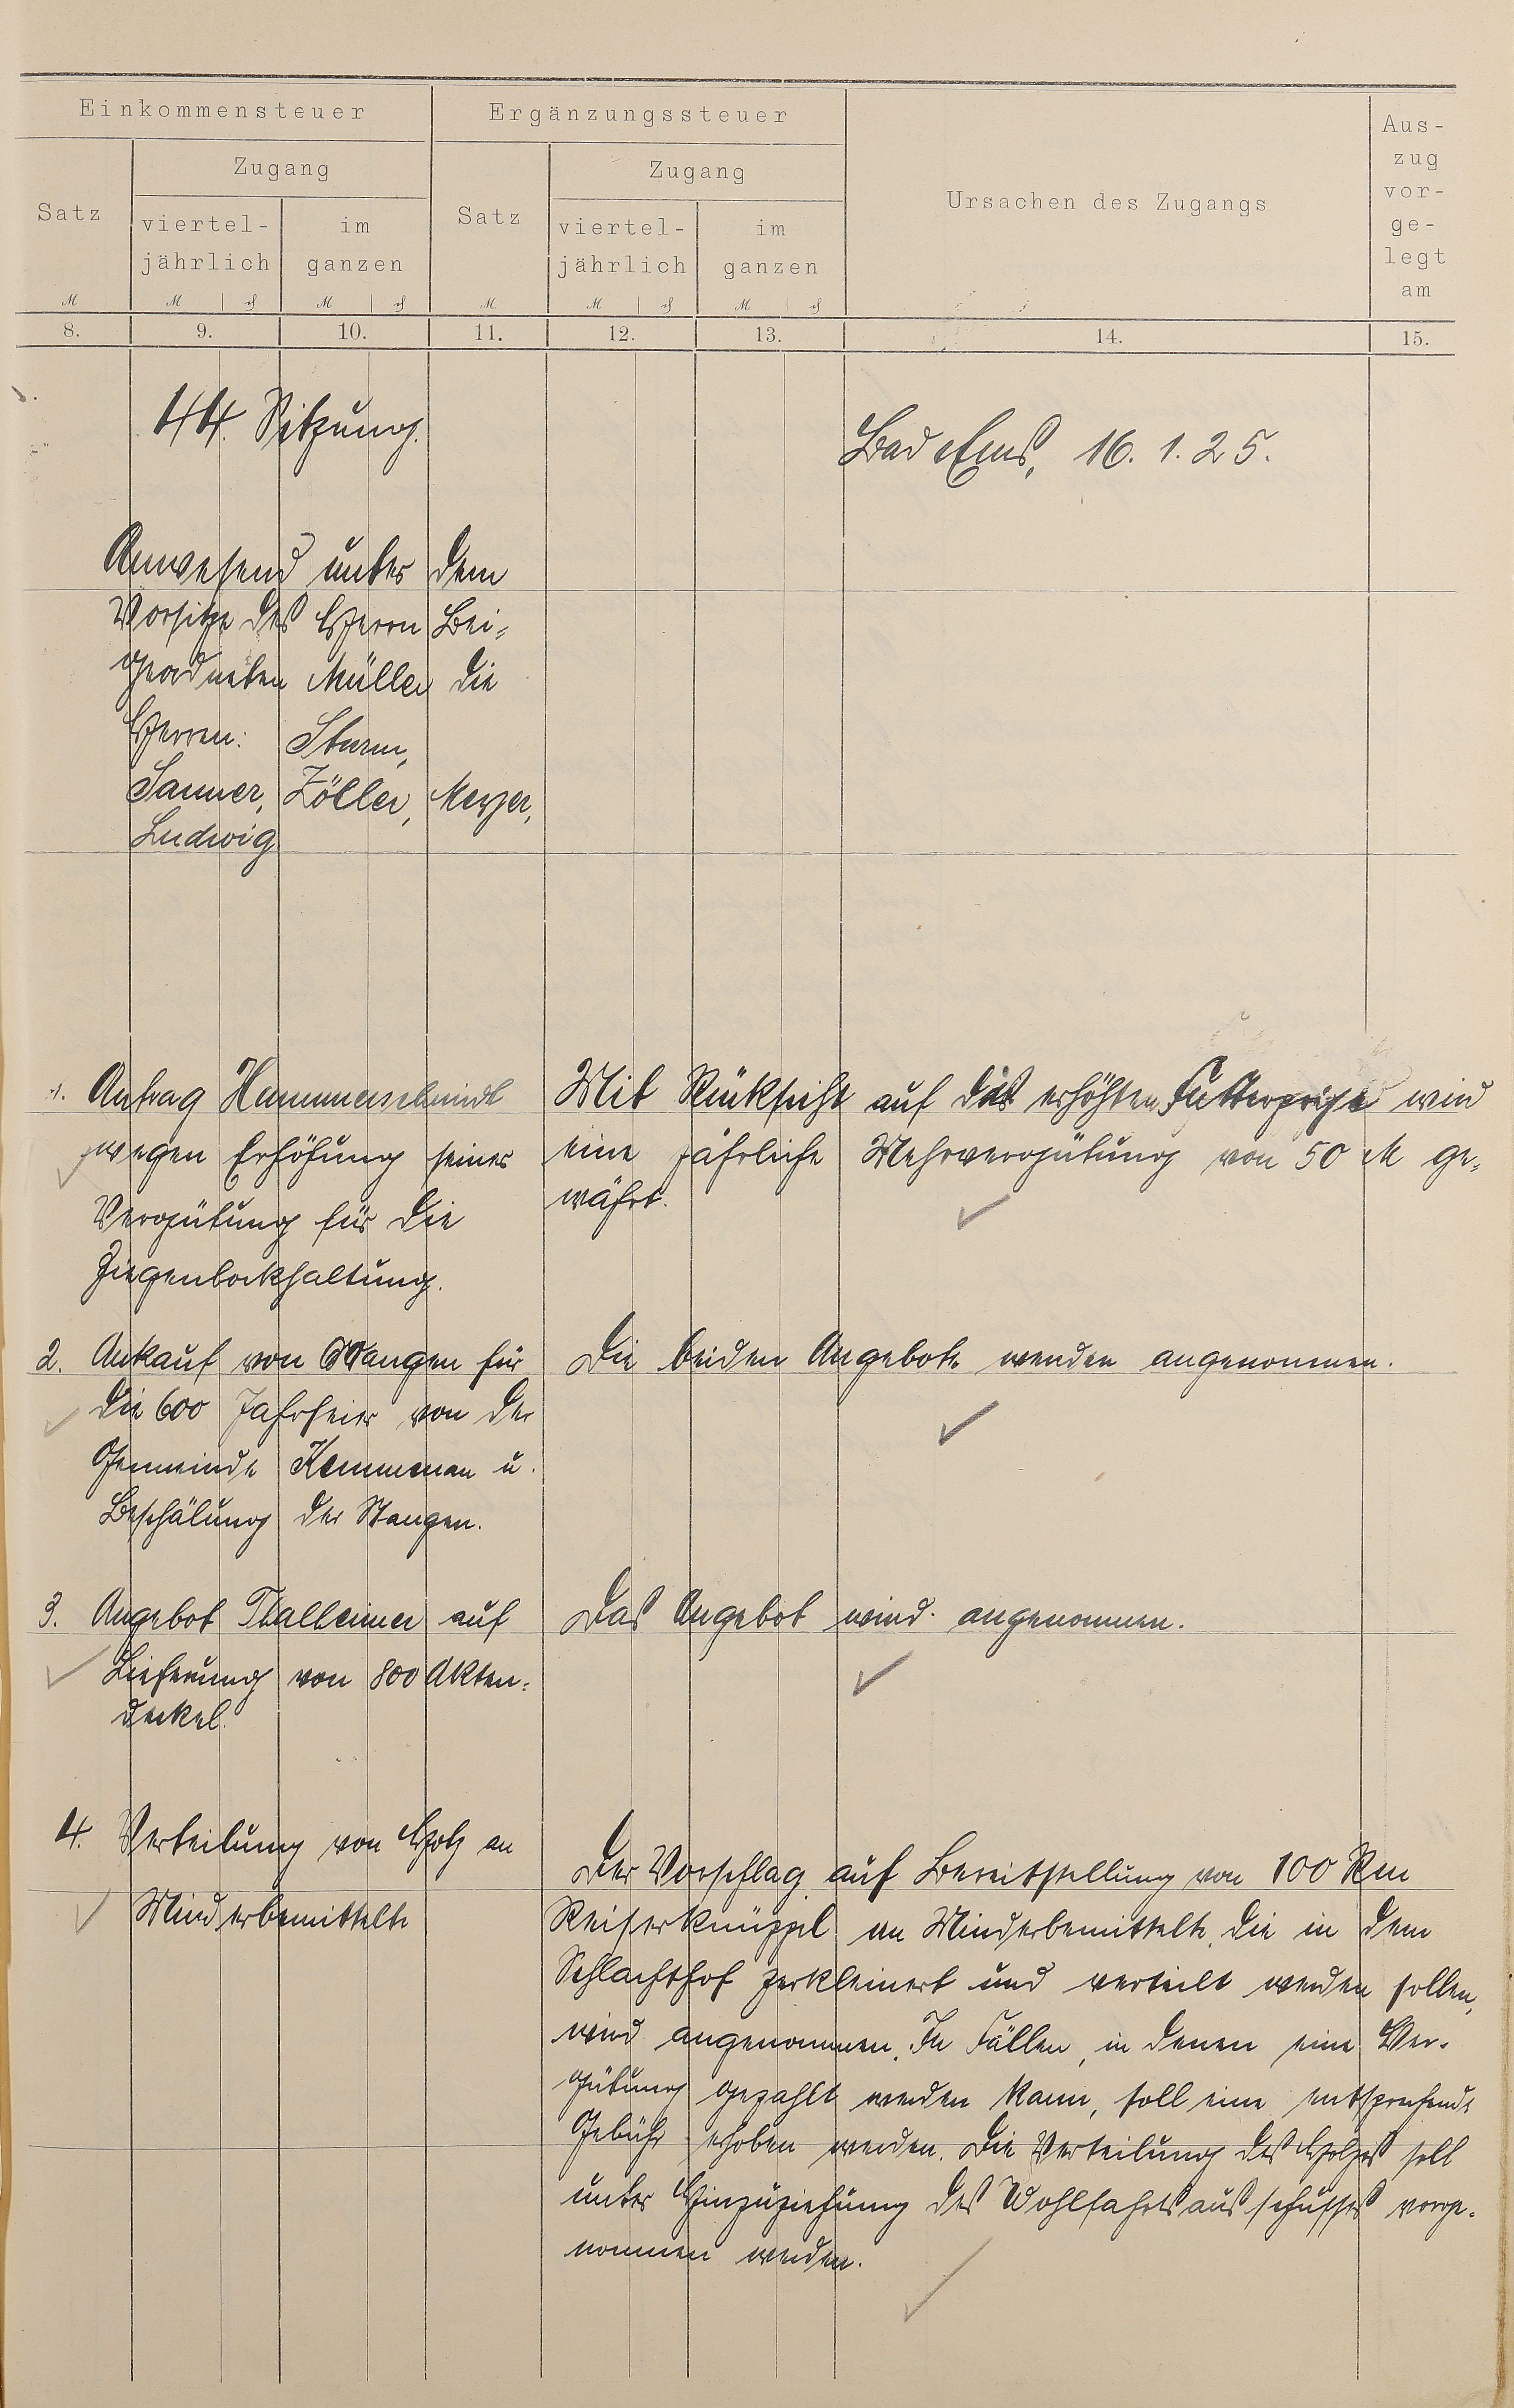 Einkommensteuer
Ergänzungssteuer
Ursachen des Zugangs
Aus-
zug
vor-
ge-
legt
am
Satz
Zugang
viertel-
jährlich
im
ganzen
Satz
Zugang
viertel-
jährlich
im
ganzen
M M ₰ M ₰ M M ₰ M ₰
8. 9. 10. 11. 12. 13. 14. 15.
44. Sitzung.
Bad Ems, 16. 1. 25.
Anwesend unter dem
Vorsitze des Herrn Bei-
geordneten Müller die
Herren: Sturm,
Sanner, Zöller, Meyer,
Ludwig
1. Antrag Hammerschmidt
wegen Erhöhung seiner
Vergütung für die
Ziegenbockhaltung.
Mit Rücksicht auf die erhöhten Futterpreise wird
eine jährliche Mehrvergütung von 50 M ge-
währt.
2. Ankauf von Stangen für
die 600 Jahrfeier von der
Gemeinde Kemmenau u.
Beschälung der Stangen.
Die beiden Angebote werden angenommen.
3. Angebot Thalheimer auf
Lieferung von 800 Akten-
deckel.
Das Angebot wird angenommen.
4. Verteilung von Holz an
Minderbemittelte
Der Vorschlag auf Bereitstellung von 100 Rm
Reiserknüppel an Minderbemittelte, die in dem
Schlachthof zerkleinert und verteilt werden sollen,
wird angenommen. In Fällen, in denen eine Ver-
gütung gezahlt werden kann, soll eine entsprechende
Gebühr erhoben werden. Die Verteilung des Holzes soll
unter Hinzuziehung des Wohlfahrtsausschusses vorge-
nommen werden.